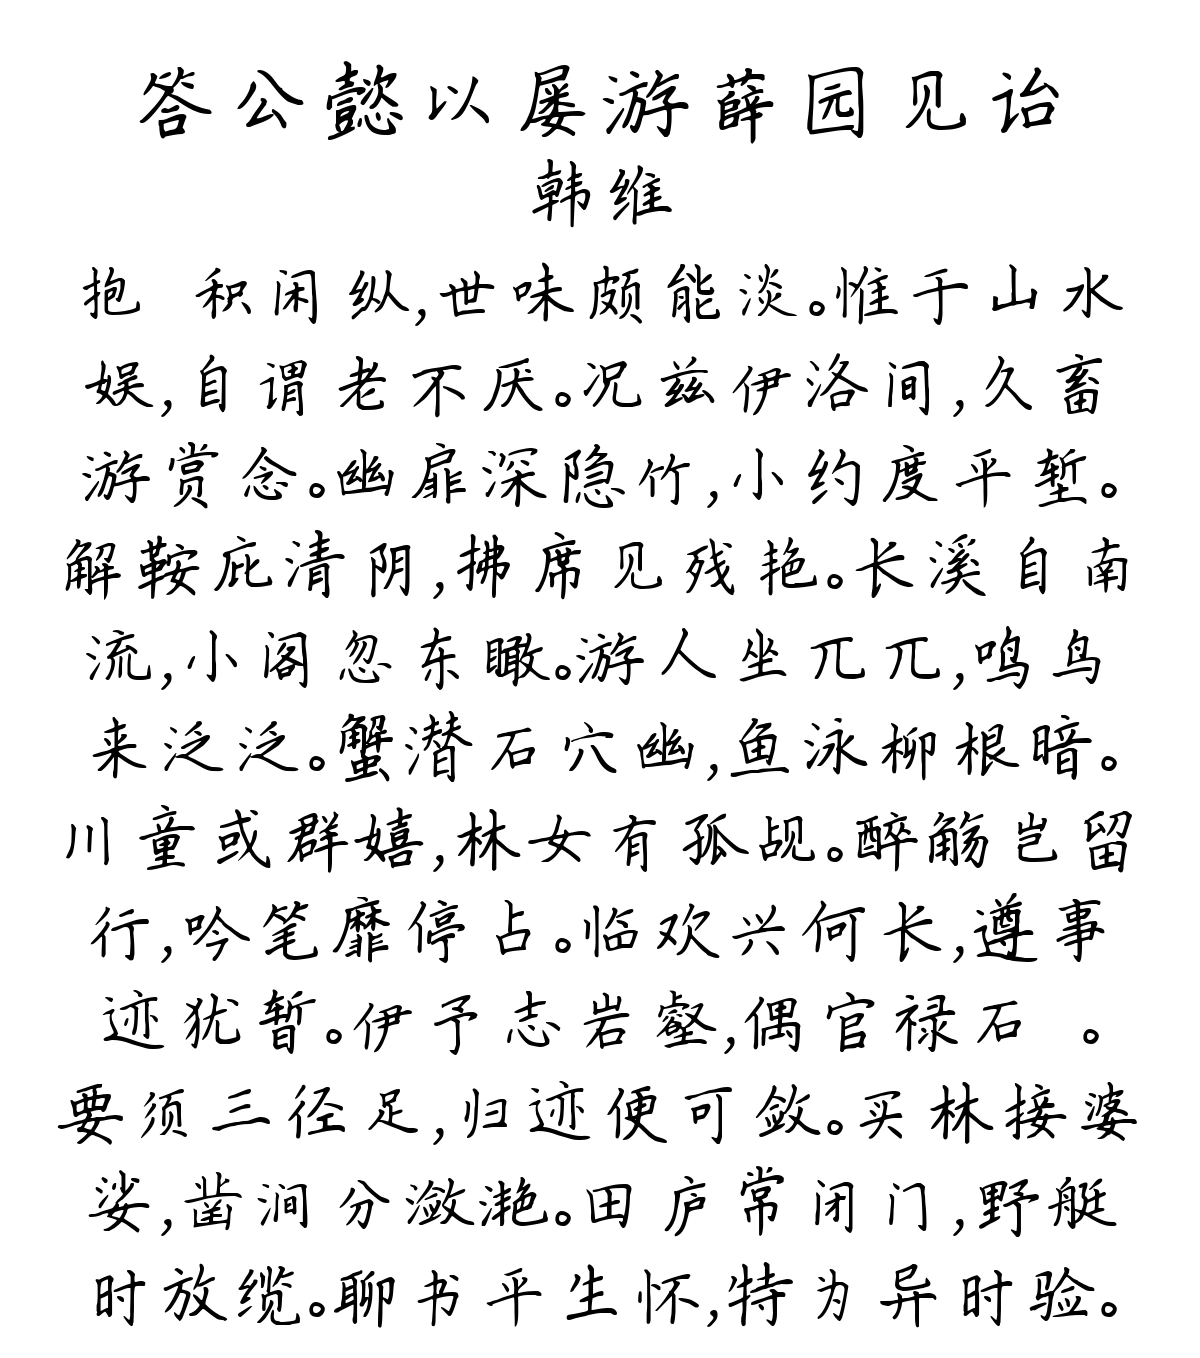 答公懿以屡游薛园见诒
韩维
抱 积闲纵,世味颇能淡。惟于山水
娱,自谓老不厌。况兹伊洛间,久畜
游赏念。幽扉深隐竹,小约度平堑。
解鞍庇清阴,拂席见残艳。长溪自南
流,小阁忽东瞰。游人坐兀兀,鸣鸟
来泛泛。蟹潜石穴幽,鱼泳柳根暗。
川童或群嬉,林女有孤觇。醉觞岂留
行,吟笔靡停占。临欢兴何长,遵事
迹犹暂。伊予志岩壑,偶官禄石 。
要须三径足,归迹便可敛。买林接婆
娑,凿涧分潋滟。田庐常闭门,野艇
时放缆。聊书平生怀,特为异时验。